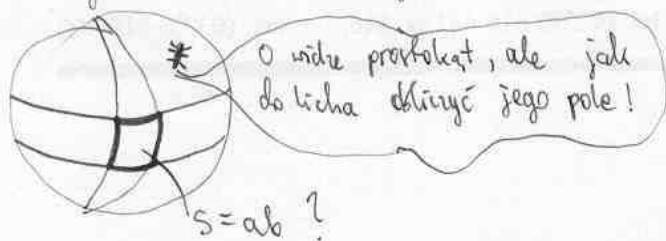 O widzę prostokąt, ale jak
do licha obliczyć jego pole!
S = ab ?